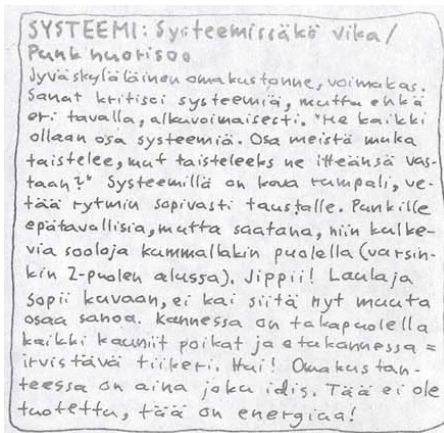 SYSTEEMI: Systeemissäkö vika/
Punk nuorisoo
Jyväskyläläinen omakustanne, voimakas.
Sanat kritisoi systeemiä, mutta ehkä
eri tavalla, alkuvoimaisesti. "Me kaikki
ollaan osa systeemiä. Osa meistä muka
taistelee, mut taisteleeks ne itteänsä vas-
taan?" Systeemillä on kova rumpali, ve-
tää rytmin sopivasti taustalle. Punkille
epätavallisia, mutta saatana, niin kulke-
via sooloja kummallakin puolella (varsin-
kin 2-puolen alussa). Jippii! Laulaja
sopii kuvaan, ei kai siitä nyt muuta
osaa sanoa. Kannessa on takapuolella
kaikki kauniit poikat ja etukannessa =
irvistävä tiikeri. Hui! Omakustan-
teessa on aina joku idis. Tää ei ole
tuotettu, tää on energiaa!